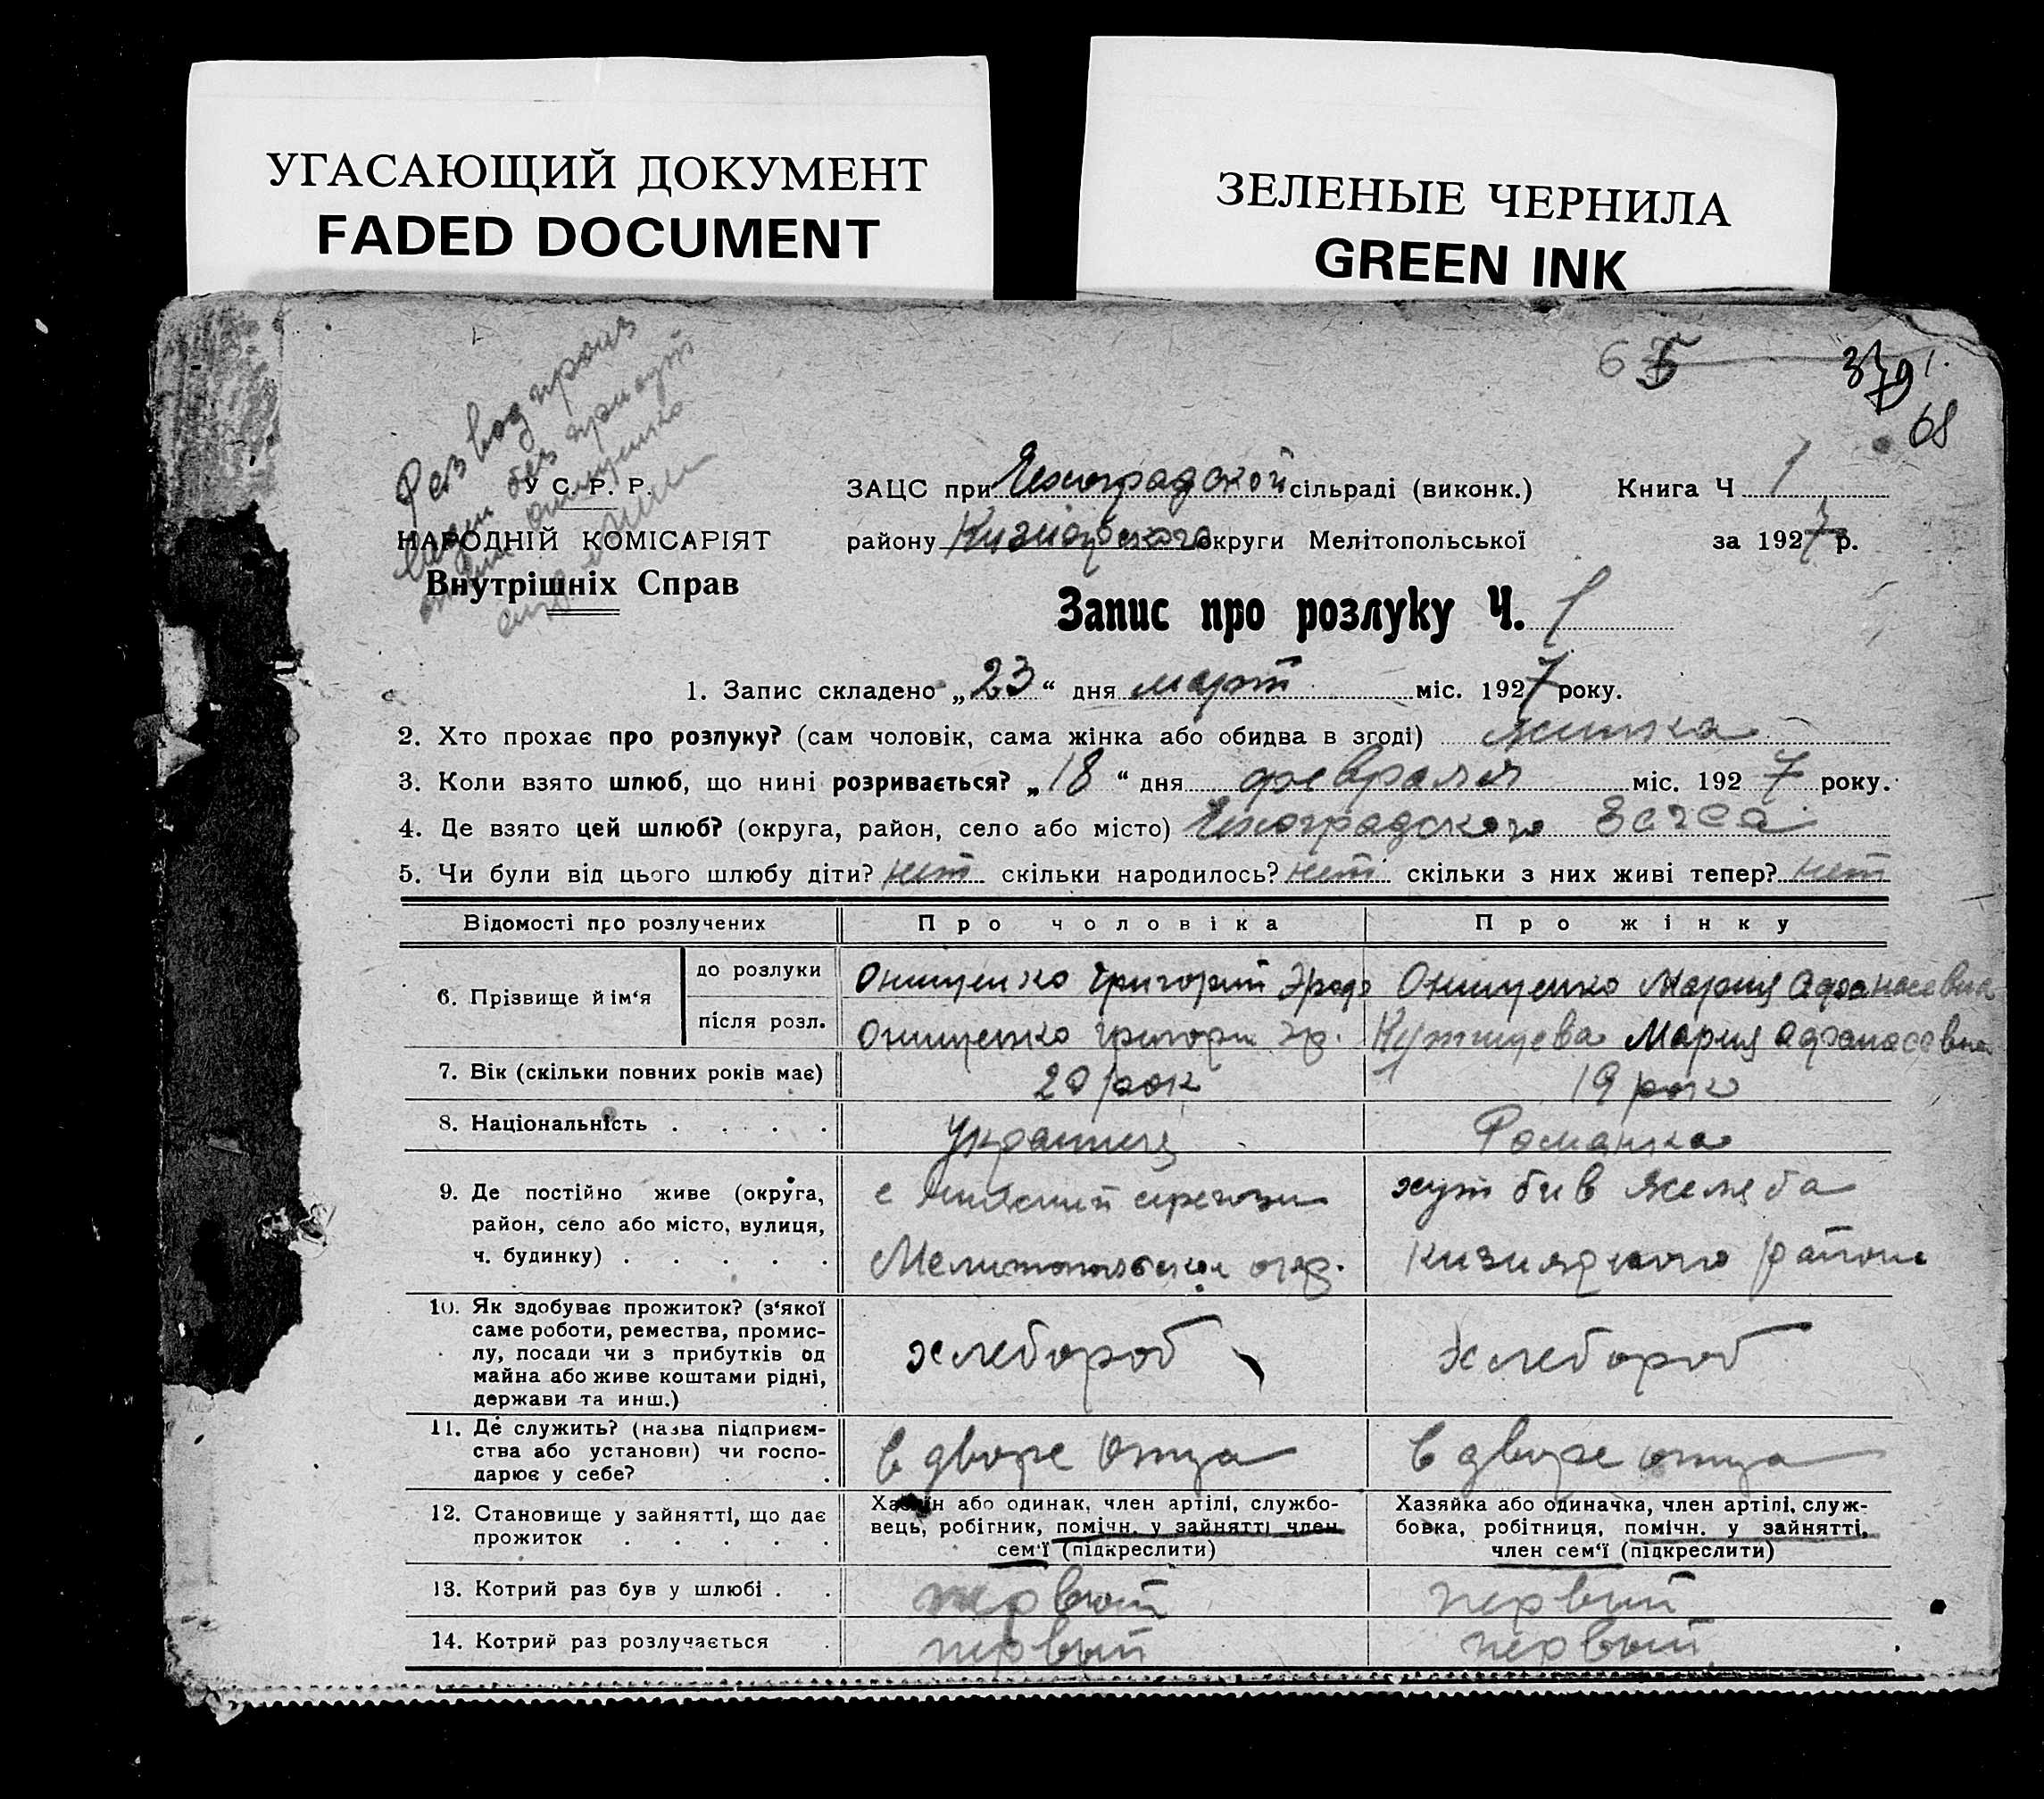 УГАСАЮЩИЙ ДОКУМЕНТ
FADED DOCUMENT
ЗЕЛЕНЫЕ ЧЕРНИЛА
GREEN INK
65
379
68
Развод произ
без присут
У С. Р. Р.
НАРОДНІЙ КОМІСАРІЯТ
Внутрішніх Справ
ЗАЦС при сільраді (виконк.) Книга Ч 1
району округи Мелітопольської за 1927 р.
Запис про розлуку Ч. 1
1. Запис складено „23“ дня март міс. 1927 року.
2. Хто прохає про розлуку? (сам чоловік, сама жінка або обидва в згоді) жинка
3. Коли взято шлюб, що нині розривається? „18“ дня февраля міс. 1927 року.
4. Де взято цей шлюб? (округа, район, село або місто) Загса
5. Чи були від цього шлюбу діти? нет скільки народилось? нет скільки з них живі тепер? нет
Відомості про розлучених Про чоловіка Про жінку
6. Прізвище й ім‘я
до розлуки Онищенко Григорий Онищенко Мария Афанасевна
після розл. Онищенко Григори Мария Афанасевна
7. Вік (скільки повних років має) 20 рок 19 рок
8. Національність . . . . Украинец
9. Де постійно живе (округа,
район, село або місто, вулиця,
ч. будинку) . . . . .
с Нижний серегози
Мелитопольской окр.
хут
района
10. Як здобуває прожиток? (з‘якої
саме роботи, ремества, промис-
лу, посади чи з прибутків од
майна або живе коштами рідні,
держави та инш.)
хлебороб хлебороб
11. Де служить? (назва підприєм-
ства або установи) чи госпо-
дарює у себе? . .
в дворе отца в дворе отца
12. Становище у зайнятті, що дає
прожиток . . . . .
Хазяїн або одинак, член артілі, службо-
вець, робітник, помічн. у зайнятті член
сем‘ї (підкреслити)
Хазяйка або одиначка, член артілі, служ-
бовка, робітниця, помічн. у зайнятті,
член сем‘ї (підкреслити)
13. Котрий раз був у шлюбі . . первый первый
14. Котрий раз розлучається . первый первый